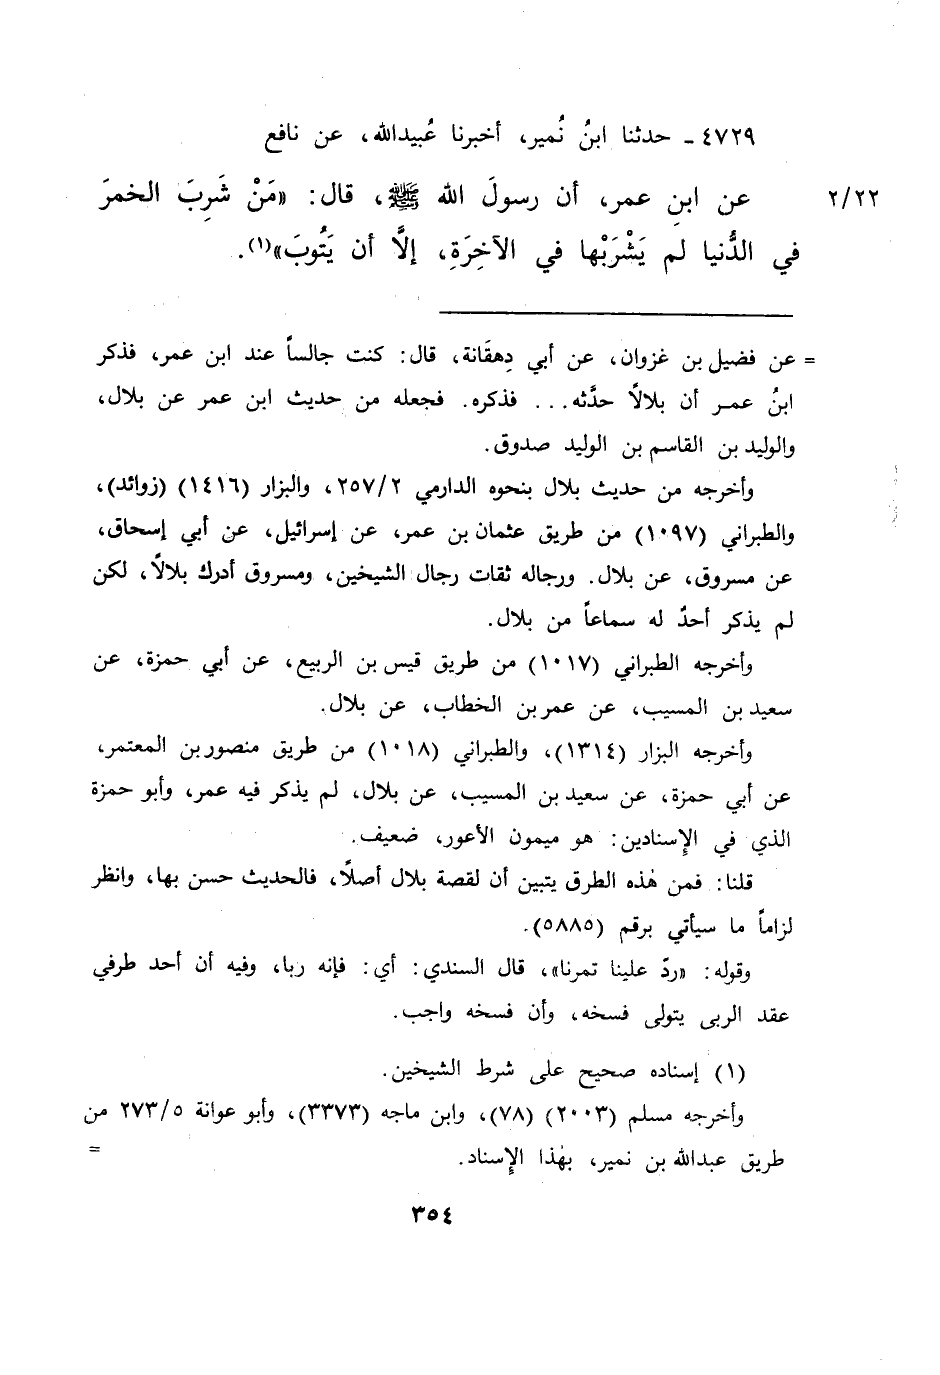 ٤٧٢٩ - حدثنا ابنُ نُمير، أخبرنا عُبيدالله، عن نافع
٢/٢٢
عن ابنِ عمر، أن رسولَ الله ﷺ، قال: «مَنْ شَرِبَ الخمرَ
في الدُّنيا لم يَشْرَبْها في الآخِرَةِ، إلَّا أن يَتُوبَ»(١).
= عن فضيل بن غزوان، عن أبي دِهقَانة، قال: كنت جالساً عند ابن عمر، فذكر
ابنُ عمر أن بلالاً حدَّثه... فذكره. فجعله من حديث ابن عمر عن بلال،
والوليد بن القاسم بن الوليد صدوق.
وأخرجه من حديث بلال بنحوه الدارمي ٢٥٧/٢، والبزار (١٤١٦) (زوائد)،
والطبراني (١٠٩٧) من طريق عثمان بن عمر، عن إسرائيل، عن أبي إسحاق،
عن مسروق، عن بلال. ورجاله ثقات رجال الشيخين، ومسروق أدرك بلالاً، لكن
لم يذكر أحدٌ له سماعاً من بلال.
وأخرجه الطبراني (١٠١٧) من طريق قيس بن الربيع، عن أبي حمزة، عن
سعيد بن المسيب، عن عمر بن الخطاب، عن بلال.
وأخرجه البزار (١٣١٤)، والطبراني (١٠١٨) من طريق منصور بن المعتمر،
عن أبي حمزة، عن سعيد بن المسيب، عن بلال، لم يذكر فيه عمر، وأبو حمزة
الذي في الإسنادين: هو ميمون الأعور، ضعيف.
قلنا: فمن هٰذه الطرق يتبين أن لقصة بلال أصلاً، فالحديث حسن بها، وانظر
لزاماً ما سيأتي برقم (٥٨٨٥).
وقوله: «ردّ علينا تمرنا»، قال السندي: أي: فإنه ربا، وفيه أن أحد طرفي
عقد الربى يتولى فسخه، وأن فسخه واجب.
(١) إسناده صحيح على شرط الشيخين.
وأخرجه مسلم (٢٠٠٣) (٧٨)، وابن ماجه (٣٣٧٣)، وأبو عوانة ٢٧٣/٥ من
طريق عبدالله بن نمير، بهٰذا الإسناد. =
٣٥٤